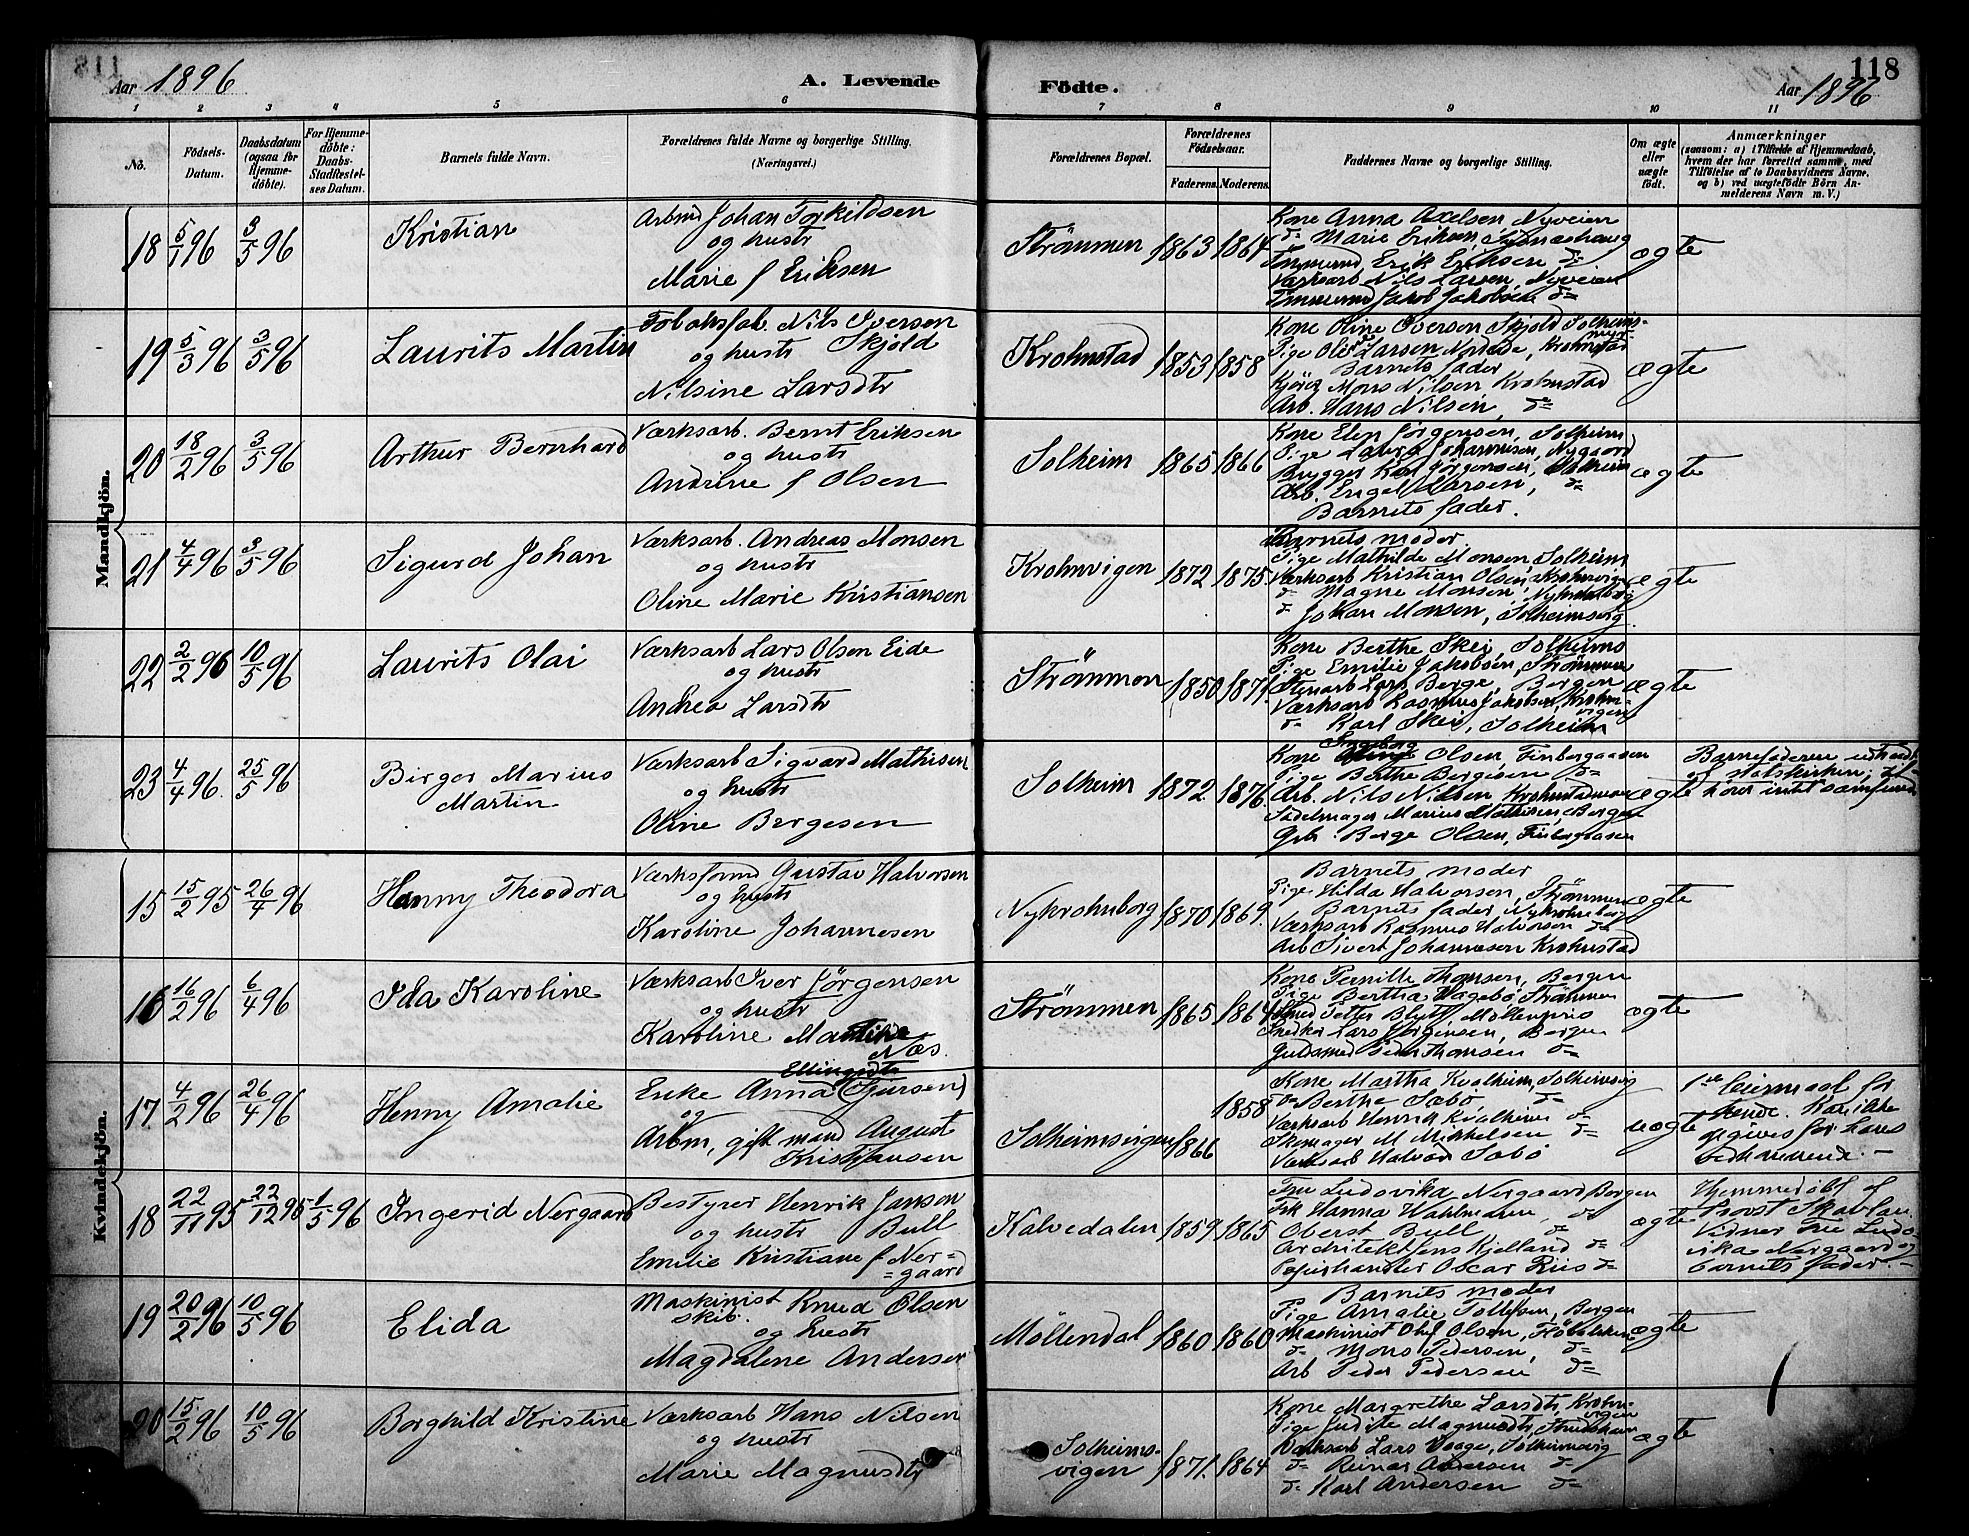 118
Aar 1896
A. Levende
Födte.
Aar 1896
1 2 3 4 5 6 7 8 9 10 11
No.
Födsels-
Datum.
Daabsdatum
(ogsaa for
Hjemme-
döbte).
For Hjemme-
döbte:
Daabs-
Stadfæstel-
ses Datum.
Barnets fulde Navn.
Forældrenes fulde Navne og borgerlige Stilling.
(Næringsvei.)
Forældrenes Bopæl.
Forældrenes
Födselsaar.
Faderens. Moderens.
Faddernes Navne og borgerlige Stilling.
Om ægte
eller
uægte
födt.
Anmærkninger
(saasom: a) i Tilfælde af Hjemmedaab,
hvem der har forrettet samme, med
Tilföielse af to Daabsvidners Navne,
og b) ved uægtefödte Börn An-
melderens Navn m. V.)
Mandkjön.
18 5/1 96 3/5 96 Kristian
Arbmd Johan Torkildsen
og hustr
Marie f Eriksen
Strömmen 1863 1864
Kone Anna Axelsen, Nyveien
do Marie Eriksen,
Erik Eriksen do
Værksarb Nils Larsen, Nyveien
Tömmermd Jacob Jakobsen do
ægte
19 5/3 96 3/5 96 Laurits Martin
Tobaksfab. Nils Iversen
og hustr Skjold
Nilsine Larsdtr
Krohnstad 1853 1858
Kone Oline Iversen Skjold Solheims-
Pige Oline Larsen Krohnstad
Barnets fader
Mons Nilsen Krohnstad
Arb. Hans Nilsen, do
ægte
20 18/2 96 3/5 96 Arthur Bernhard
Værksarb. Bernt Eriksen
og hustr
Andrine f Olsen
Solheim 1865 1866
Kone Elen Jörgensen, Solheim
Pige Laura Johannesen, Nygaard
Brygger Karl Jörgensen, Solheim
Arb. Engel Larsen, do
Barnets fader.
ægte
21 4/4 96 3/5 96 Sigurd Johan
Værksarb. Andreas Monsen
og hustr
Oline Marie Kristiansen
Krohnvigen 1872 1875
Barnets moder
Pige Mathilde Monsen, Solheim
Værksarb Kristian Olsen, Krohnvigen
do Magne Monsen, Nykrohnborg
do Johan Monsen, Solheimsvig
ægte
22 2/2 96 10/5 96 Laurits Olai
Værksarb Lars Olsen Eide
og hustr
Andrea Larsdtr
Strömmen 1850 1871
Kone Berthe Skei, Solheims
Pige Emilie Jakobsen, Strömmen
Stenarb Lars Berge, Bergen
Værksarb Rasmus Jakobsen, Krohn-
vigen
do Karl Skei, Solheim
ægte
23 4/4 96 25/5 96 Birger Marius
Martin
Værksarb Sigvard Mathisen
og hustr
Oline Bergesen
Solheim 1872 1876
Ingeborg
Kone Olsen, Finbergaasen
Pige Berthe Bergesen do
Arb. Nils Nilsen Krohnstadmoen
Sadelmager Marius Mathisen, Bergen
Gbr. Berge Olsen, Finbergaasen
ægte
Barnefaderen udtraadt
af statskirken, til-
hører intet samfund
Kvindekjön.
15 15/2 95 26/4 96 Hanny Theodora
Værksformd Gustav Halvorsen
og hustr
Karoline Johannesen
Nykrohnborg 1870 1869
Barnets moder
Pige Hilda Halvorsen, Strömmen
Barnets fader, Nykrohnborg
Værksarb Rasmus Halvorsen do
Arb Sivert Johannesen Krohnstad
ægte
16 16/2 96 6/4 96 Ida Karoline
Værksarb Iver Jörgensen
og hustr
Karoline
Næs.
Strömmen 1865 1864
Kone Pernille Thomsen, Bergen
Pige Bertha Hagebö, Strömmen
Smed Petter Blytt, Möllenpris
Snedker Lars Jörgensen, Bergen
Guldsmed Peder Thomsen do
ægte
17 4/2 96 26/4 96 Henny Amalie
Ellingsdtr
Enke Anna (Tjursen)
og
Arbm, gift mand August
Kristiansen
Solheimsvigen 1866 1858
Kone Martha Kvalheim, Solheimsvig
do Berthe Sæbö do
Værksarb Henrik Kvalheim do
Skomager M Mikkelsen do
Værksarb Halvor Sæbö
uægte
1ste leiermaal for
hende. Kan ikke
opgives for hans
vedkommende. —
18 22/11 95 22/12 95 1/5 96 Ingerid Nergaard
Bestyrer Henrik Janson
og hustr Bull
Emilie Kristiane f Ner=
=gaard
Kalvedalen 1859 1865
Fru Ludovika Nergaard Bergen
Frk Hanna Wahlmann, do
Oberst Bull do
Arkitekt Jens Kjelland do
Papirhandler Oscar Riis do
ægte
Hjemmedöbt af
Provst Skavlan
Vidner Fru Ludo-
vika Nergaard og
barnets fader. —
19 20/2 96 10/5 96 Elida
Maskinist Knud Olsen
skib.
og hustr
Magdalene Andersen
Möllendal 1860 1860
Barnets moder
Pige Amalie Tollefsen, Bergen
Maskinist Oluf Olsen, Flöibakken
do Mons Pedersen, do
Arb Peder Pedersen do
ægte
20 15/2 96 10/5 96 Borghild Kristine
Værksarb Hans Nilsen
og hustr
Marie Magnusdtr
Solheims-
vigen 1871 1864
Kone Margrethe Larsdtr, Krohn-
vigen
Pige Judite Magnusdtr,
Værksarb Lars Vaage, Solheimsvig
do Reinar Andersen do
do Karl Andersen do
ægte